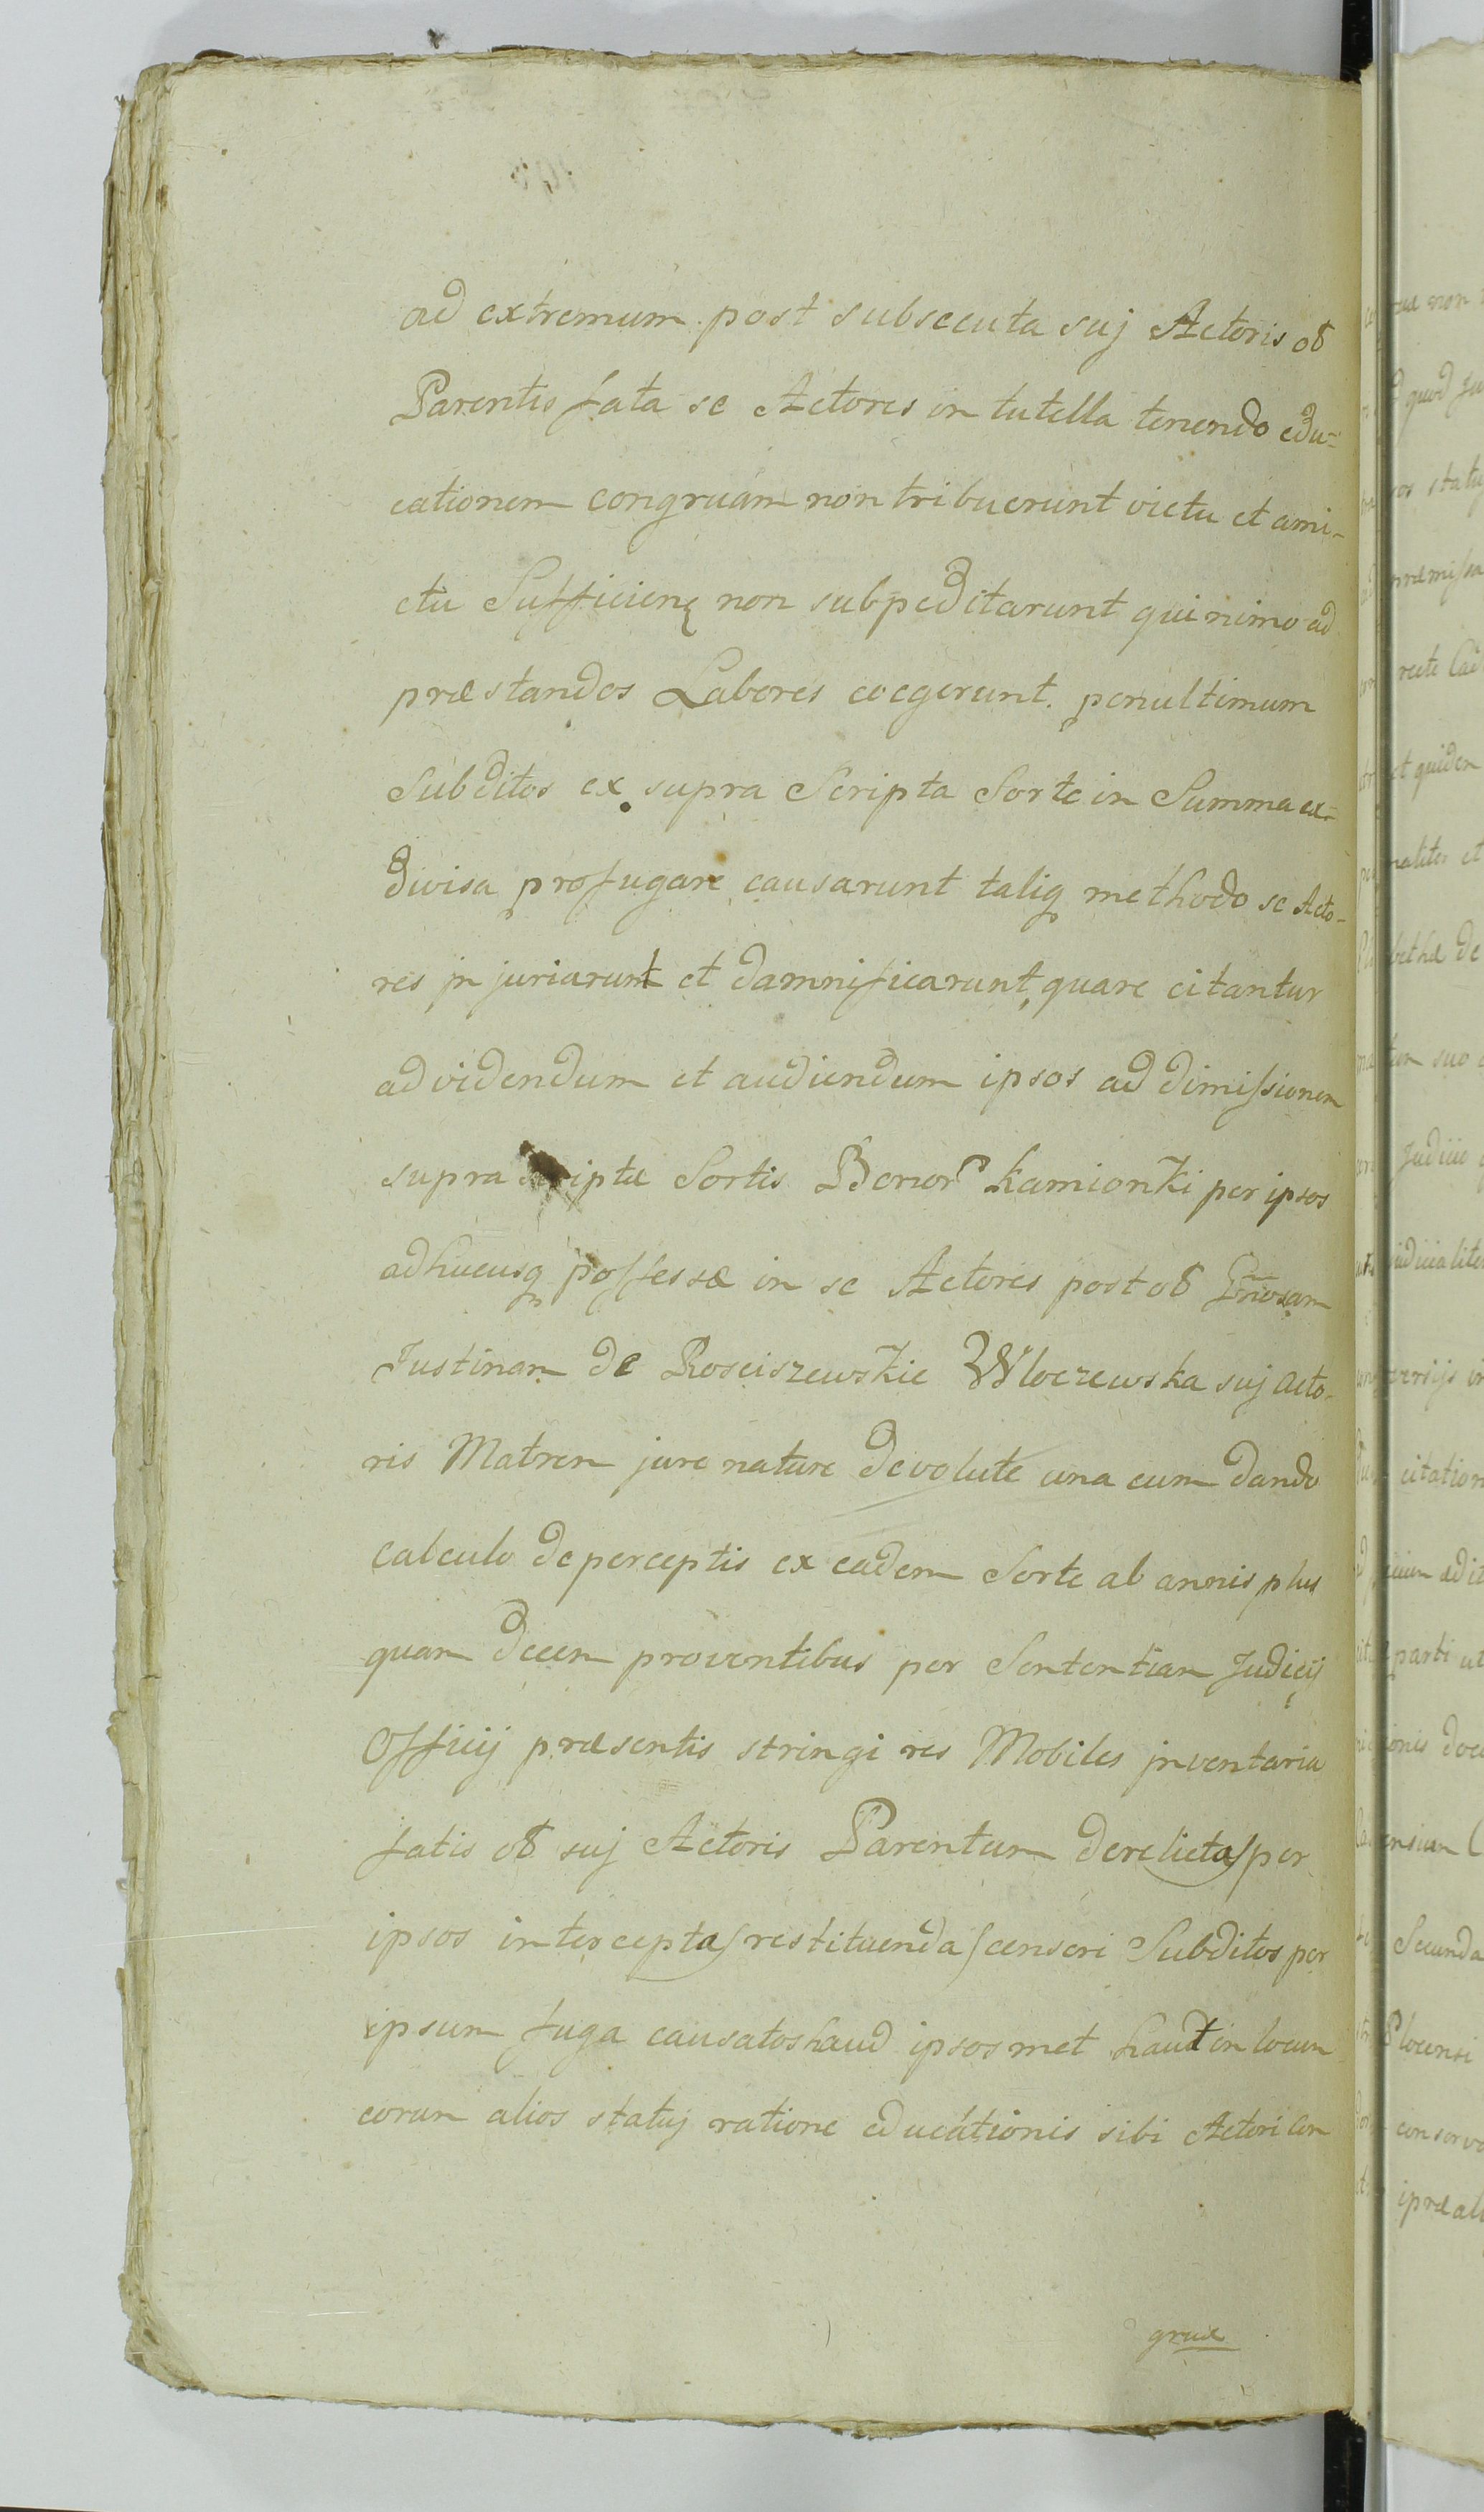 ad extremum post subsecuta suj Actoris ob
Parentis fata se Actores in tutella tenendo edu=
cationem congruam non tribuerunt victu et ami-
ctu Sufficienq non subpeditarunt quinimo ad
præstandos Labores coegerunt. penultimum
Subditos ex supra Scripta Sorte in Summa ex=
divisa profugare causarunt taliq methodo se Acto-
res jnjuriarunt et damnificarunt, quare citantur
ad videndum et audiendum ipsos ad dimissionem
supra scriptæ Sortis Bonor Kamionki per ipsos
adhucusq possessæ in se Actores post ob Gnosam
Justinam de Rosciszewskie Wloczewska suj Acto-
ris Matrem jure nature devolute una cum dando
calculo de perceptis ex eadem Sorte ab annis plus
quam decem proventibus per Sententiam Judicij
Officij præsentis stringi res Mobiles jnventaria
fatis ob suj Actoris Parentum derelicta per
ipsos intercepta restituenda censeri Subditos per
ipsum fuga causatos haud ipsosmet haut in locum
eorum alios statuj ratione educationis sibi Actori con
gruæ